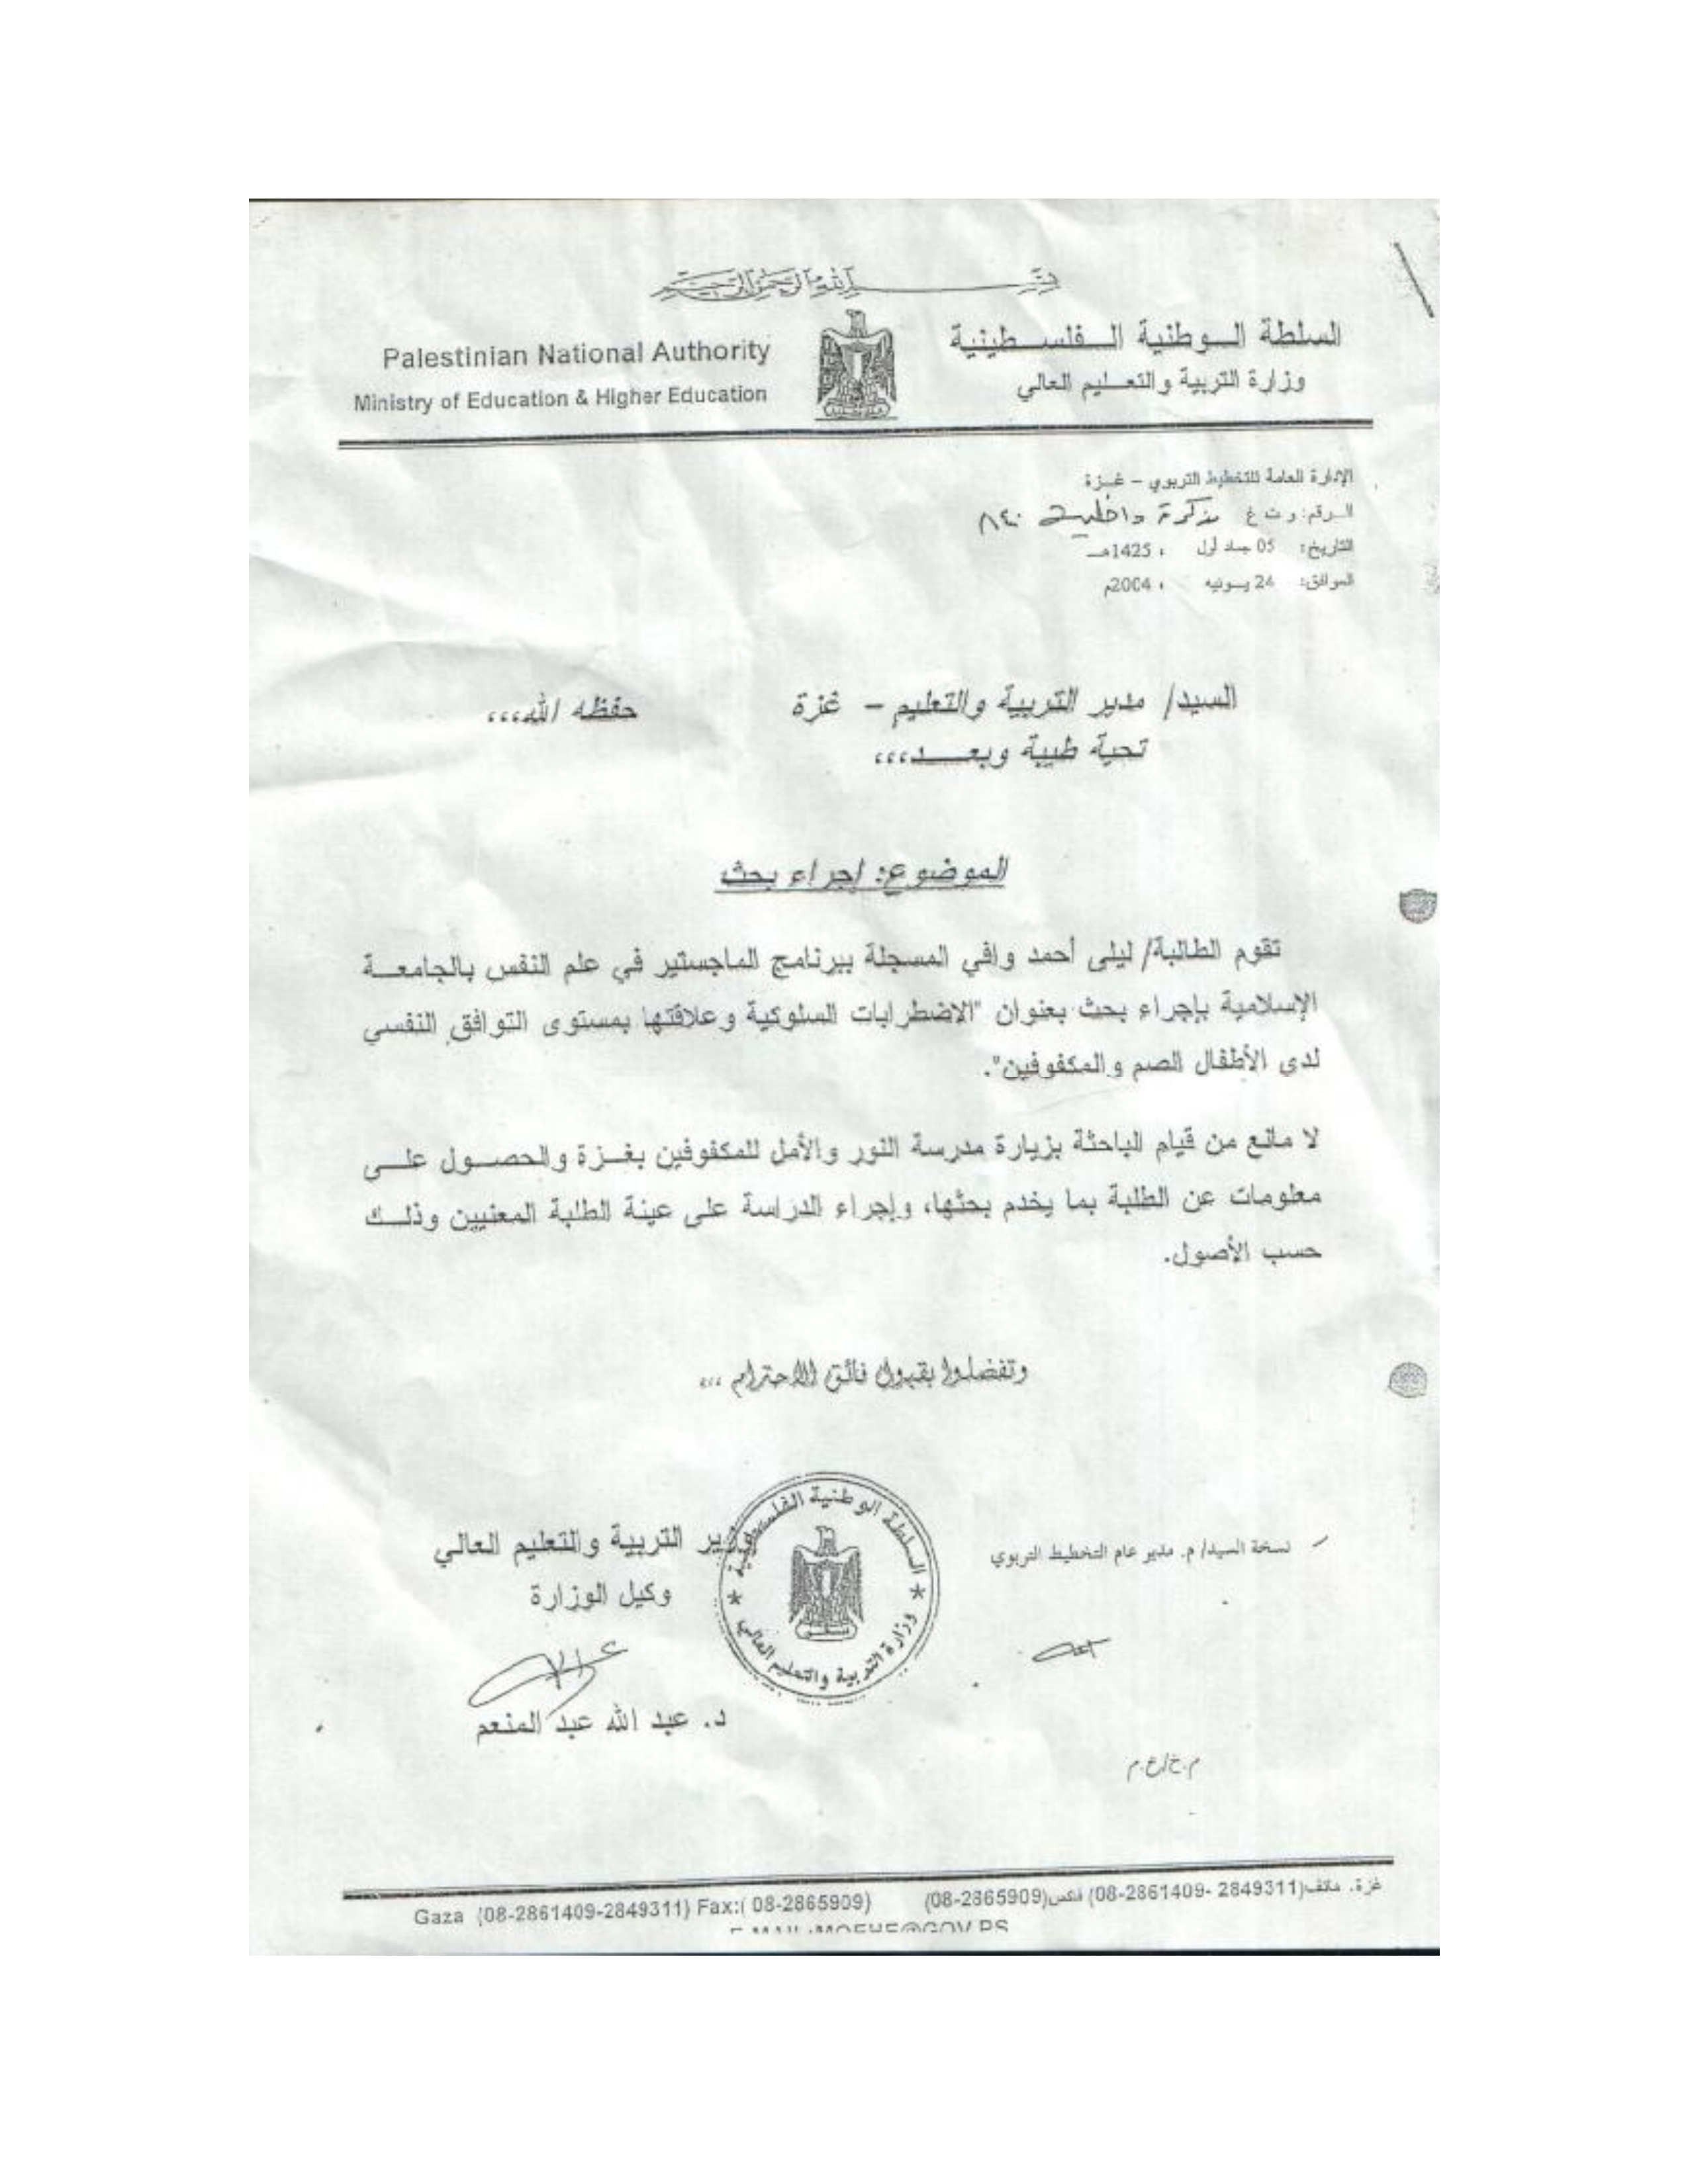 بسم الله الرحمن الرحيم
السلطة الوطنية الفلسطينية
Palestinian National Authority
وزارة التربية والتعليم العالي
Ministry of Education & Higher Education
الإدارة العامة للتخطيط التربوي – غزة
الرقم: و ت غ مذكرة داخلية
التاريخ: 05 جماد أول ، 1425هـ
الموافق: 24 يونيه ، 2004م
السيد/ مدير التربية والتعليم – غزة حفظه الله،،،
تحية طيبة وبعد،،،
الموضوع: إجراء بحث
تقوم الطالبة/ ليلى أحمد وافي المسجلة ببرنامج الماجستير في علم النفس بالجامعة
الإسلامية بإجراء بحث بعنوان "الاضطرابات السلوكية وعلاقتها بمستوى التوافق النفسي
لدى الأطفال الصم والمكفوفين".
لا مانع من قيام الباحثة بزيارة مدرسة النور والأمل للمكفوفين بغزة والحصول على
معلومات عن الطلبة بما يخدم بحثها، وإجراء الدراسة على عينة الطلبة المعنيين وذلك
حسب الأصول.
وتفضلوا بقبول فائق الاحترام ،،،
السلطة الوطنية الفلسطينية
وزارة التربية والتعليم العالي
وزير التربية والتعليم العالي
وكيل الوزارة
د. عبد الله عبد المنعم
نسخة السيد/ م. مدير عام التخطيط التربوي
م.خ/ع.م
غزة. هاتف(2849311 -08-2861409) فاكس(08-2865909)
Gaza (08-2861409-2849311) Fax:( 08-2865909)
E.MAIL:MOEHE@GOV.PS